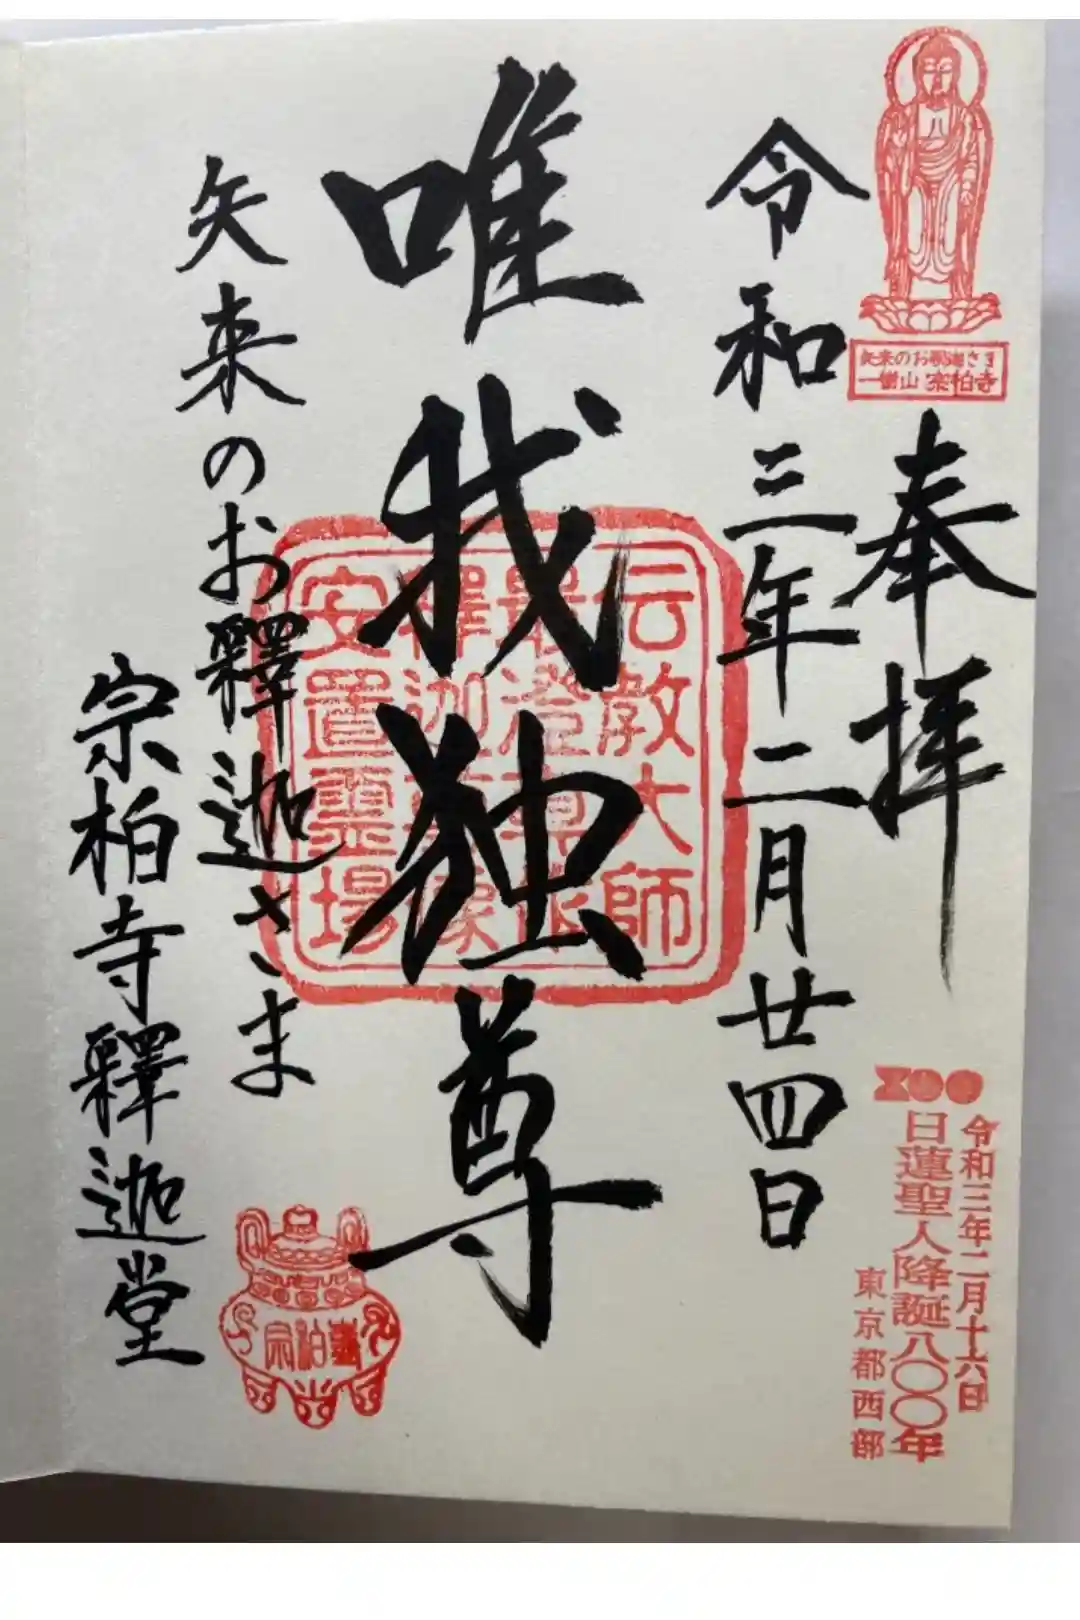 矢来のお釈迦さま
一樹山 宗柏寺
奉拝
令和三年二月廿四日
唯我独尊
矢来のお釋迦さま
宗柏寺釋迦堂
伝教大師
最澄真作
釋迦尊像
安置霊場
800
令和三年二月十六日
日蓮聖人降誕八〇〇年
東京都西部